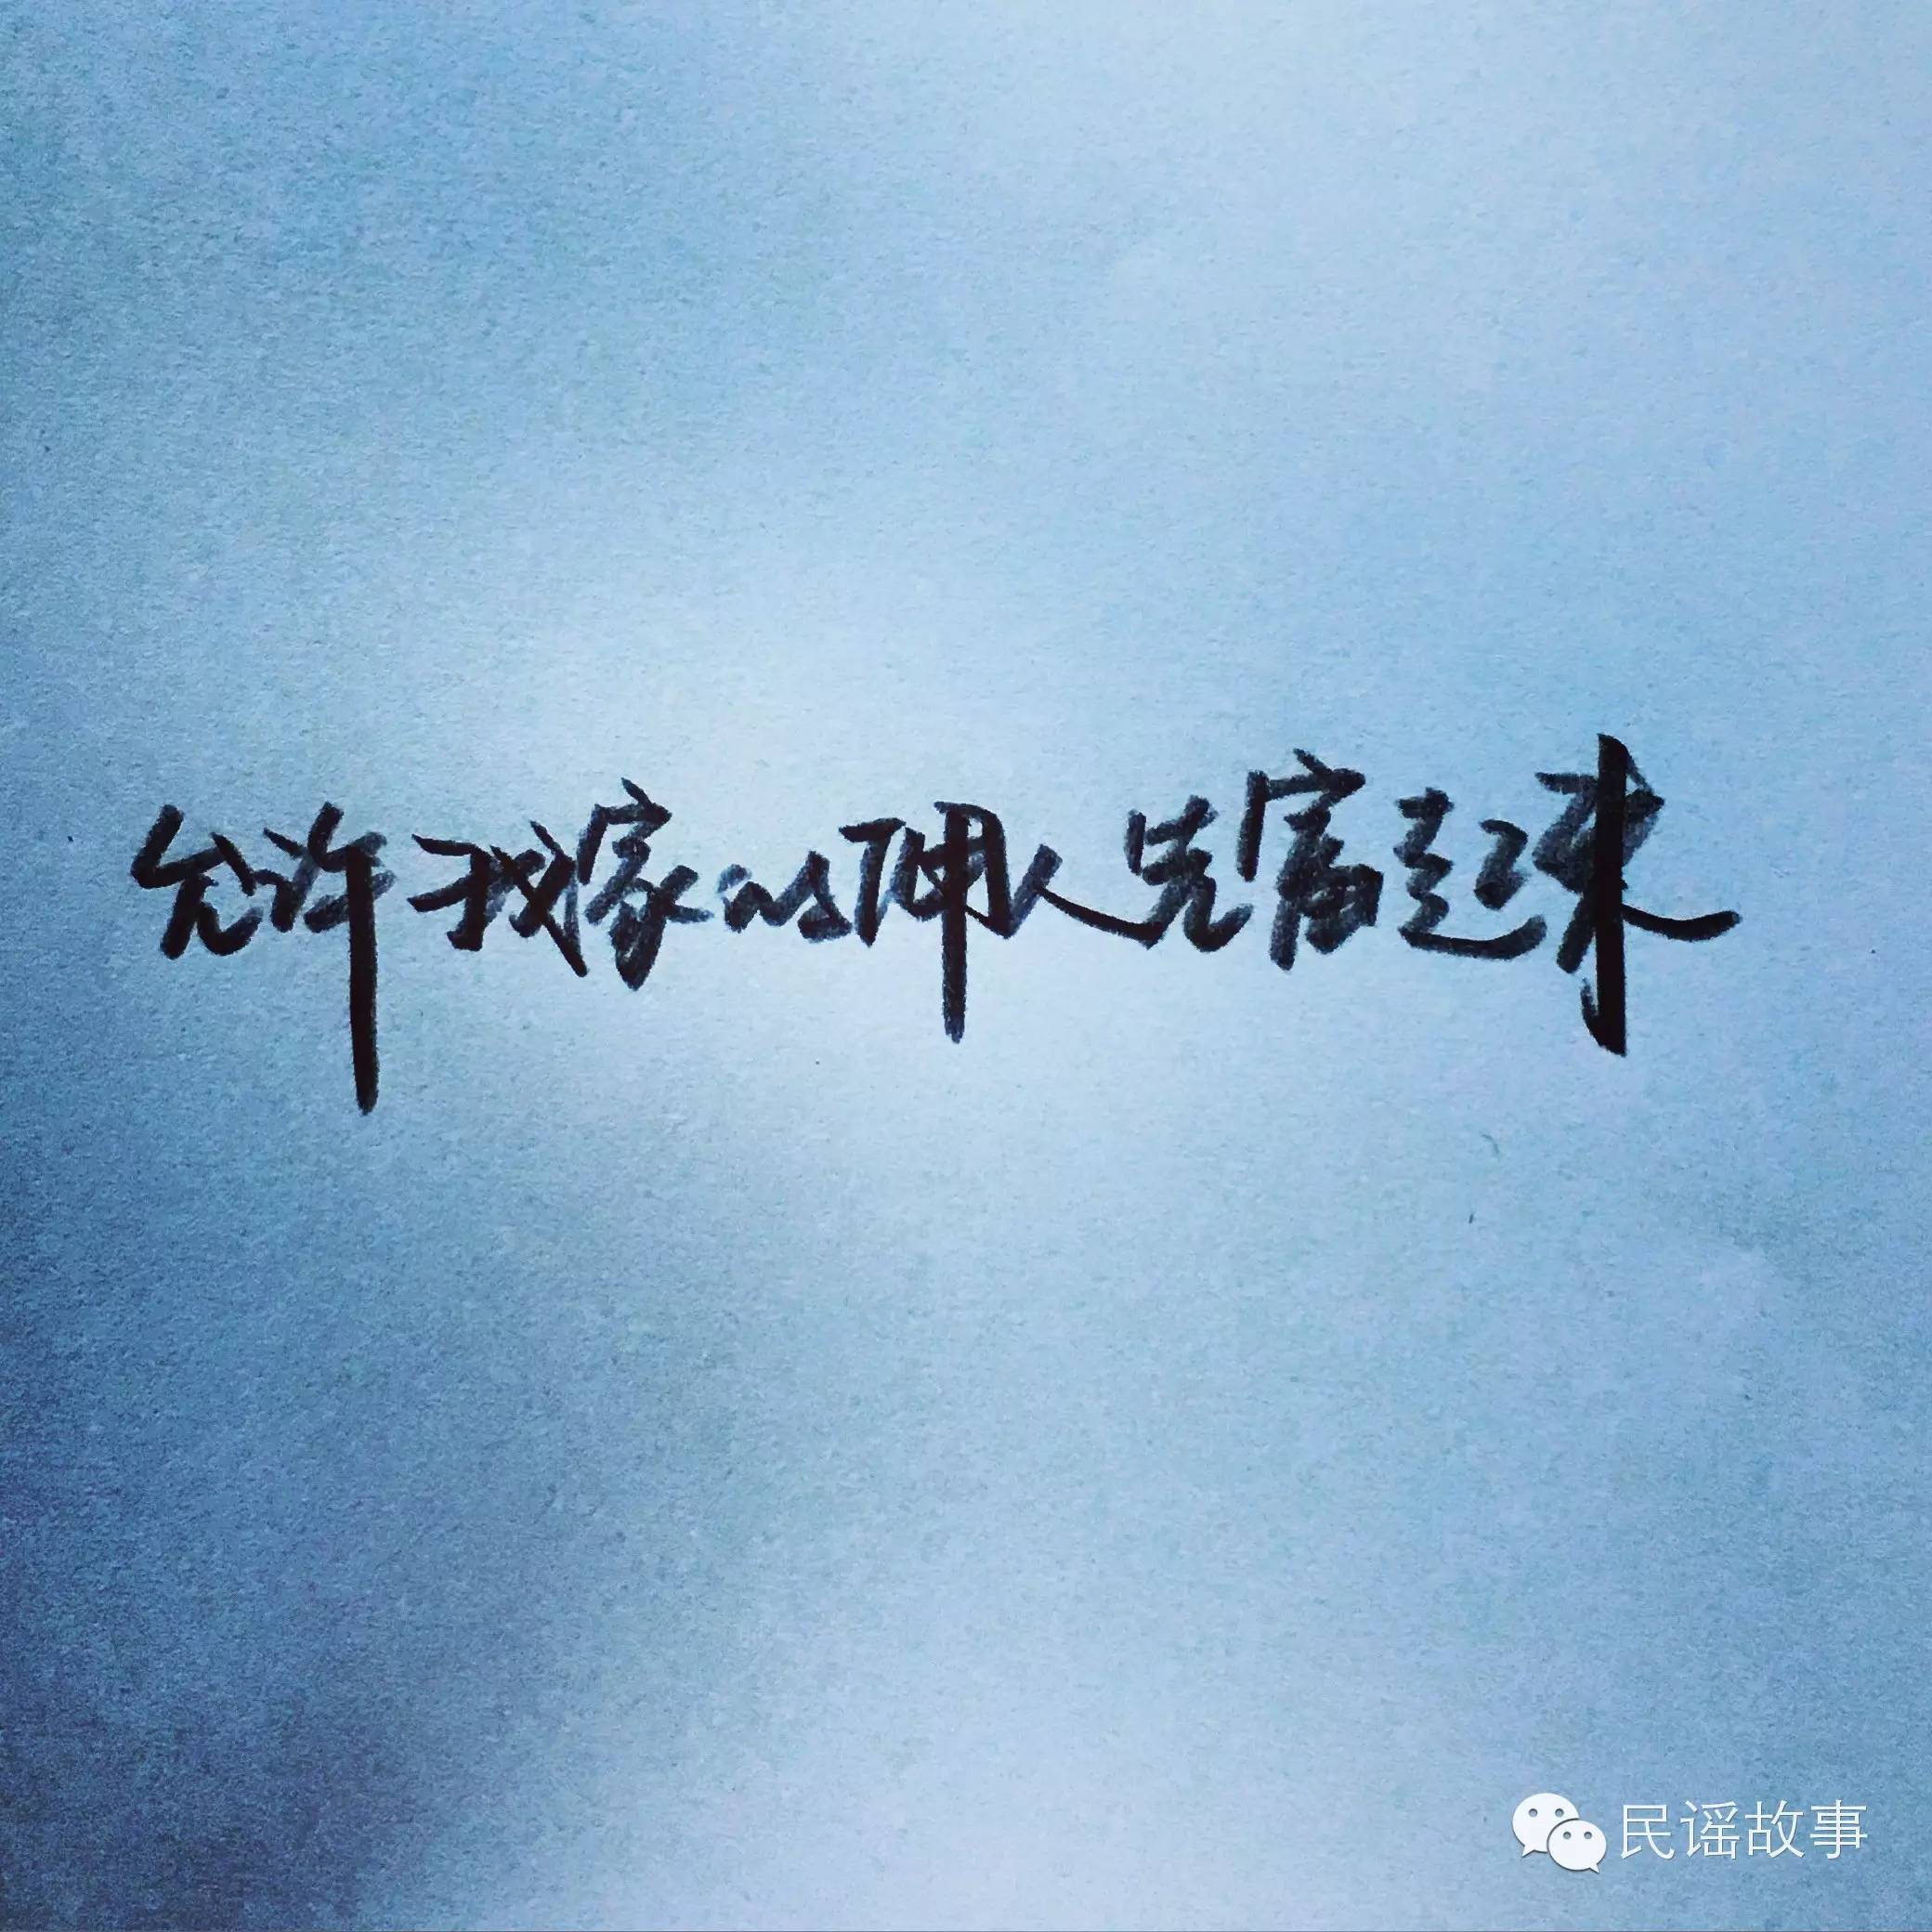 允许我家的佣人先富起来
民谣故事